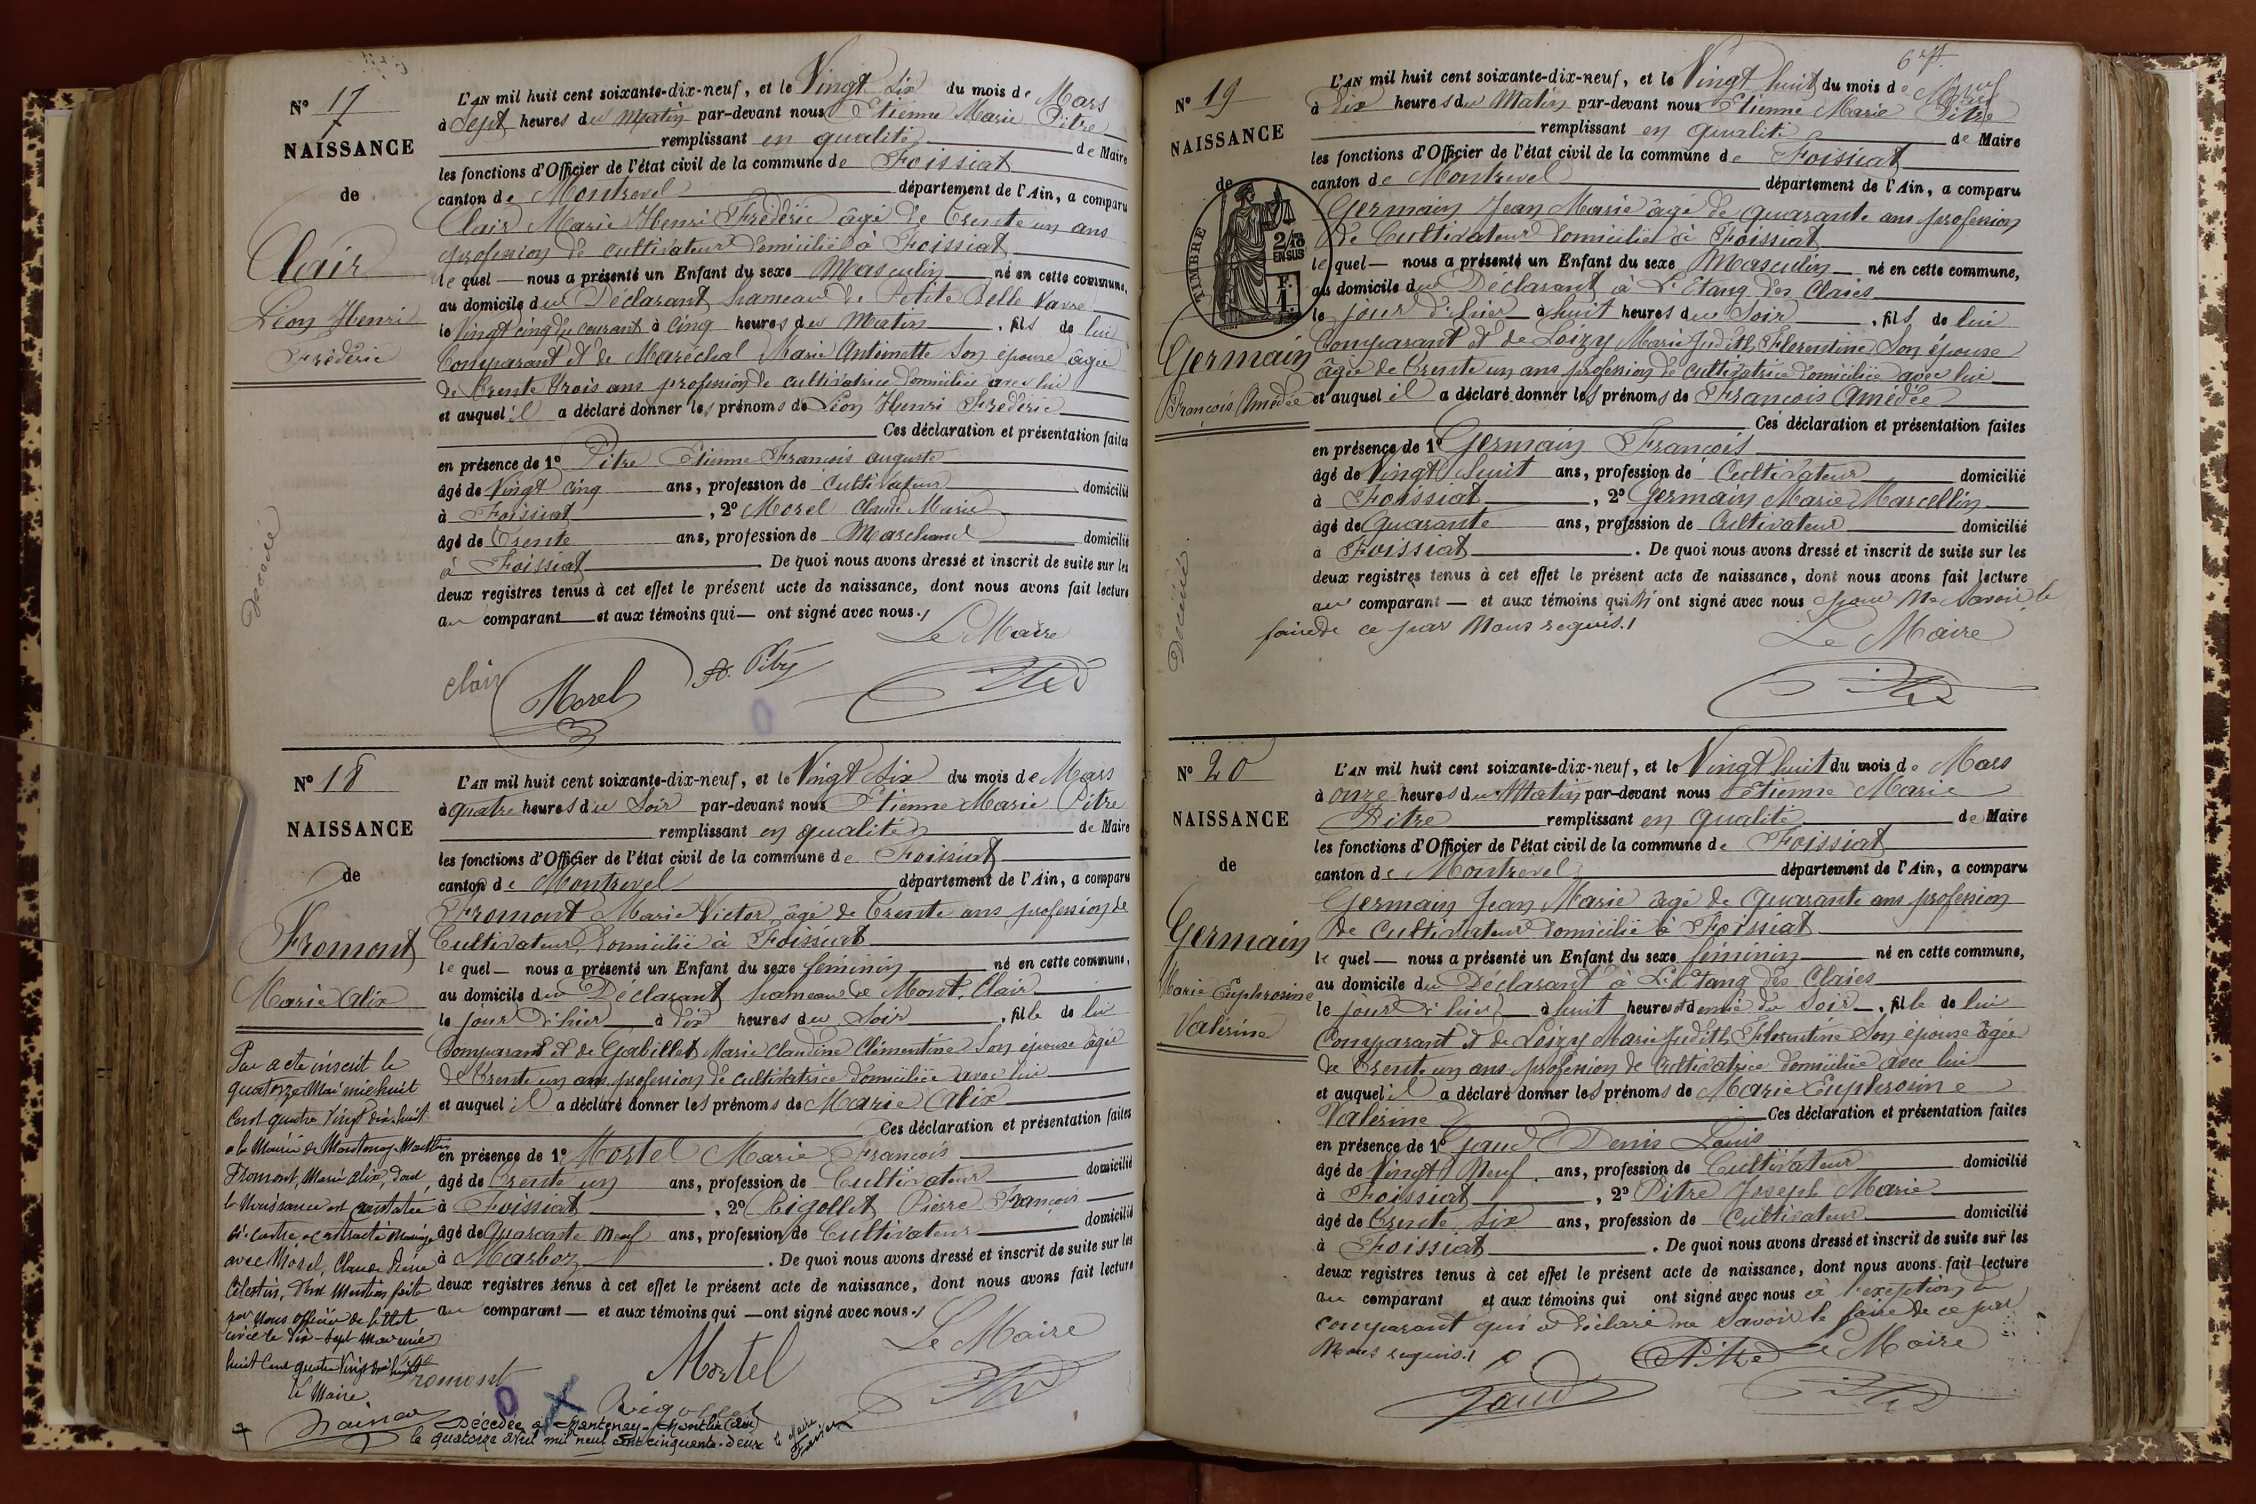 N° 17
NAISSANCE
de
Clair
Léon Henri
Frédéric
décédé
L'AN mil huit cent soixante-dix-neuf, et le Vingt six du mois de Mars
à Sept heures du Matin par-devant nous Etienne Marie Pitre
remplissant en qualité de Maire
les fonctions d'Officier de l'état civil de la commune de Foissiat
canton de Montrevel département de l'Ain, a comparu
Clair Marie Henri Frédéric âgé de trente un ans
profession de cultivateur domicilié à Foissiat
le quel — nous a présenté un Enfant du sexe Masculin né en cette commune,
au domicile du Déclarant hameau de Petite Belle Vavre
le Vingt cinq du courant à cinq heures du Matin, fils de lui
Comparant et de Maréchal Marie Antoinette son épouse âgée
de trente trois ans profession de cultivatrice domiciliée avec lui
et auquel il a déclaré donner les prénoms de Léon Henri Frédéric
Ces déclaration et présentation faites
en présence de 1° Pitre Etienne François auguste
âgé de Vingt cinq ans, profession de cultivateur domicilié
à Foissiat, 2° Morel Claude Marie
âgé de Trente ans, profession de Marchand domicilié
à Foissiat. De quoi nous avons dressé et inscrit de suite sur les
deux registres tenus à cet effet le présent acte de naissance, dont nous avons fait lecture
au comparant — et aux témoins qui — ont signé avec nous.
Le Maire
Clair Morel Pitre
Pitre
N° 18
NAISSANCE
de
Fromont
Marie Alix
Par acte inscrit le
quatorze Mai mil huit
cent quatre vingt dix-huit
à la Mairie de Mantenay-Montlin
Fromont, Marie Alix, dont
la Naissance est constatée
ci-contre a contracté Mariage
avec Morel, Claude Marie
Célestin, dont Mention faite
par Nous Officier de l'état
civil le dix-sept Mai mil
huit cent quatre vingt dix huit
Le Maire
L'AN mil huit cent soixante-dix-neuf, et le Vingt six du mois de Mars
à quatre heures du Soir par-devant nous Etienne Marie Pitre
remplissant en qualité de Maire
les fonctions d'Officier de l'état civil de la commune de Foissiat
canton de Montrevel département de l'Ain, a comparu
Fromont Marie Victor âgé de Trente ans profession de
Cultivateur domicilié à Foissiat
le quel — nous a présenté un Enfant du sexe féminin né en cette commune,
au domicile du Déclarant hameau de Mont Clair
le jour d'hier à dix heures du Soir, fille de lui
Comparant et de Gabillet Marie Claudine Clémentine son épouse âgée
de Trente un ans profession de cultivatrice domiciliée avec lui
et auquel il a déclaré donner les prénoms de Marie Alix
Ces déclaration et présentation faites
en présence de 1° Mortel Marie François
âgé de Trente un ans, profession de Cultivateur domicilié
à Foissiat, 2° Rigollet Pierre François
âgé de Quarante Neuf ans, profession de Cultivateur domicilié
à Marboz. De quoi nous avons dressé et inscrit de suite sur les
deux registres tenus à cet effet le présent acte de naissance, dont nous avons fait lecture
au comparant — et aux témoins qui — ont signé avec nous.
Le Maire
Fromont Mortel
Rigollet Pitre
Décédée à Mantenay-Montlin (Ain)
le quatorze avril mil neuf cent cinquante-deux
Le Maire
6 rft
N° 19
NAISSANCE
de
TIMBRE
2/10
EN SUS
F.
1
Germain
François Amédée
Décédé
L'AN mil huit cent soixante-dix-neuf, et le Vingt huit du mois de Mars
à Dix heures du Matin par-devant nous Etienne Marie Pitre
remplissant en qualité de Maire
les fonctions d'Officier de l'état civil de la commune de Foissiat
canton de Montrevel département de l'Ain, a comparu
Germain Jean Marie âgé de quarante ans profession
de Cultivateur domicilié à Foissiat
le quel — nous a présenté un Enfant du sexe Masculin né en cette commune,
au domicile du Déclarant à L'Etang des Claies
le jour d'hier à huit heures du Soir, fils de lui
Comparant et de Loizy Marie Judith Florentine son épouse
âgée de Trente un ans profession de cultivatrice domiciliée avec lui
et auquel il a déclaré donner les prénoms de François Amédée
Ces déclaration et présentation faites
en présence de 1° Germain François
âgé de Vingt huit ans, profession de Cultivateur domicilié
à Foissiat, 2° Germain Marie Marcellin
âgé de Quarante ans, profession de Cultivateur domicilié
à Foissiat. De quoi nous avons dressé et inscrit de suite sur les
deux registres tenus à cet effet le présent acte de naissance, dont nous avons fait lecture
au comparant — et aux témoins qui n'ont signé avec nous pour ne savoir le
faire de ce par Nous requis.
Le Maire
Pitre
N° 20
NAISSANCE
de
Germain
Marie Euphrosine
Valérine
L'AN mil huit cent soixante-dix-neuf, et le Vingt huit du mois de Mars
à onze heures du Matin par-devant nous Etienne Marie
Pitre remplissant en qualité de Maire
les fonctions d'Officier de l'état civil de la commune de Foissiat
canton de Montrevel département de l'Ain, a comparu
Germain Jean Marie âgé de Quarante ans profession
de cultivateur domicilié à Foissiat
le quel — nous a présenté un Enfant du sexe féminin né en cette commune,
au domicile du Déclarant à L'Etang des Claies
le jour d'hier à huit heures et demie du Soir, fille de lui
Comparant et de Loizy Marie Judith Florentine son épouse âgée
de Trente un ans profession de Cultivatrice domiciliée avec lui
et auquel il a déclaré donner les prénoms de Marie Euphrosine
Valérine Ces déclaration et présentation faites
en présence de 1° Gaud Denis Louis
âgé de Vingt Neuf ans, profession de Cultivateur domicilié
à Foissiat, 2° Pitre Joseph Marie
âgé de Trente six ans, profession de Cultivateur domicilié
à Foissiat. De quoi nous avons dressé et inscrit de suite sur les
deux registres tenus à cet effet le présent acte de naissance, dont nous avons fait lecture
au comparant et aux témoins qui ont signé avec nous à l'exeption du
comparant qui a déclaré ne savoir le faire de ce par
Nous requis.
Pitre Le Maire
Gaud Pitre